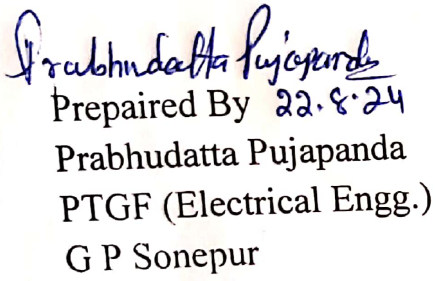 Prabhudatta Pujapanda
Prepaired By 22.8.24
Prabhudatta Pujapanda
PTGF (Electrical Engg.)
G P Sonepur